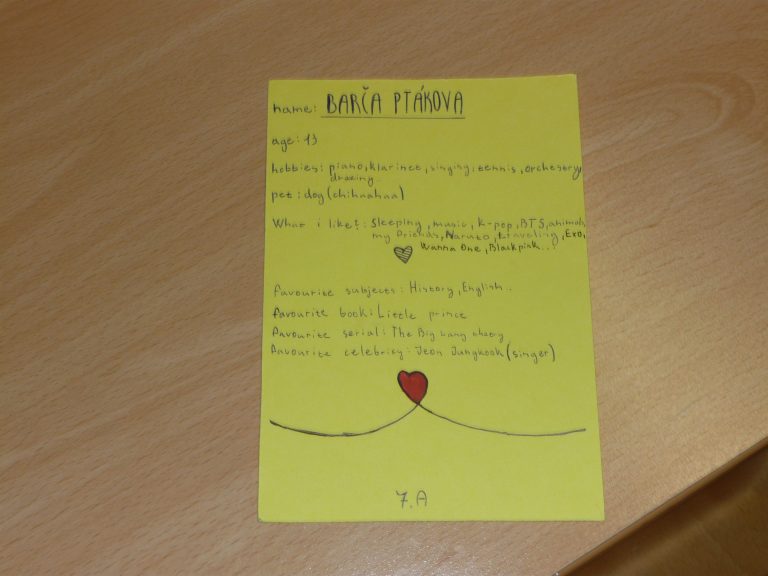 name: BARČA PTÁKOVA
age: 13
hobbies: piano, klarinet, singing, tennis, orchestry,
drawing
pet: dog (chihuahua)
What i like?: Sleeping, music, k-pop, BTS, animals,
my friends, Naruto, traveling, Exo,
Wanna One, Blackpink...
favourite subjects: History, English..
favourite book: Little prince
favourite serial: The Big bang theory
favourite celebrity: Jeon Jungkook (singer)
7.A